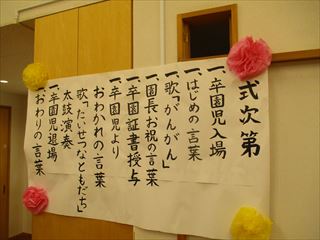 式次第
一、卒園児入場
一、はじめの言葉
一、歌「がんがん」
一、園長お祝の言葉
一、卒園証書授与
一、卒園児より
おわかれの言葉
歌「たいせつなともだち」
太鼓演奏
一、卒園児退場
一、おわりの言葉